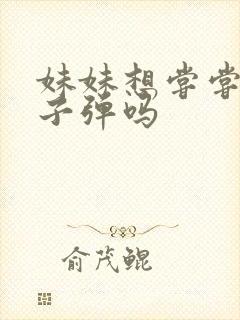 妹妹想尝尝
子弹吗
俞茂鲲